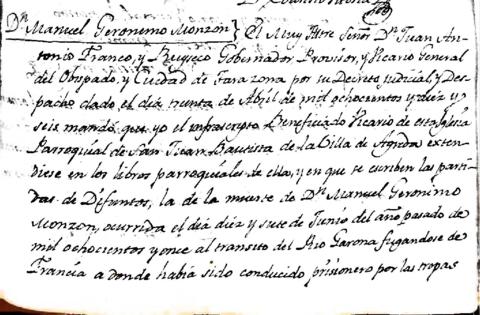 Dn. Manuel Geronimo Monzon} El Muy Iltre Señor Dn. Juan An-
tonio Franco, y Governador Provisor, y Vicario General
del Obispado, y Ciudad de Tarazona por su Decreto judicial y Des-
pacho dado el dia trenta de Abril de mil ochocientos y diez y
seis mandó, que yo el infrascripto Beneficiado Vicario de esta Iglesia
Parroquial de San Juan Bautista de la Villa de Agreda exten-
diese en los libros parroquiales de ella, y en que se escriben las parti-
das de Difuntos, la de la muerte de Dn. Manuel Geronimo
Monzon, ocurrida el dia diez y siete de Junio del año pasado de
mil ochocientos y once al transito del Rio Garona fugandose de
Francia a donde habia sido conducido prisionero por las tropas